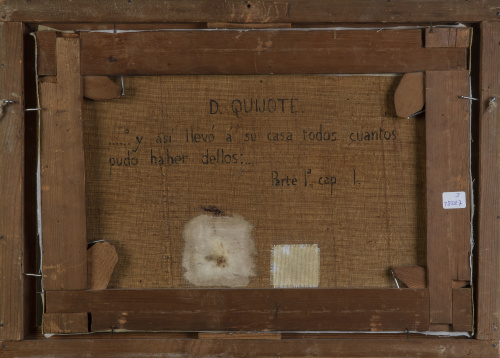 D. QUIJOTE
......y así llevó á su casa todos cuantos
pudo haber dellos;....
Parte 1ª cap 1.